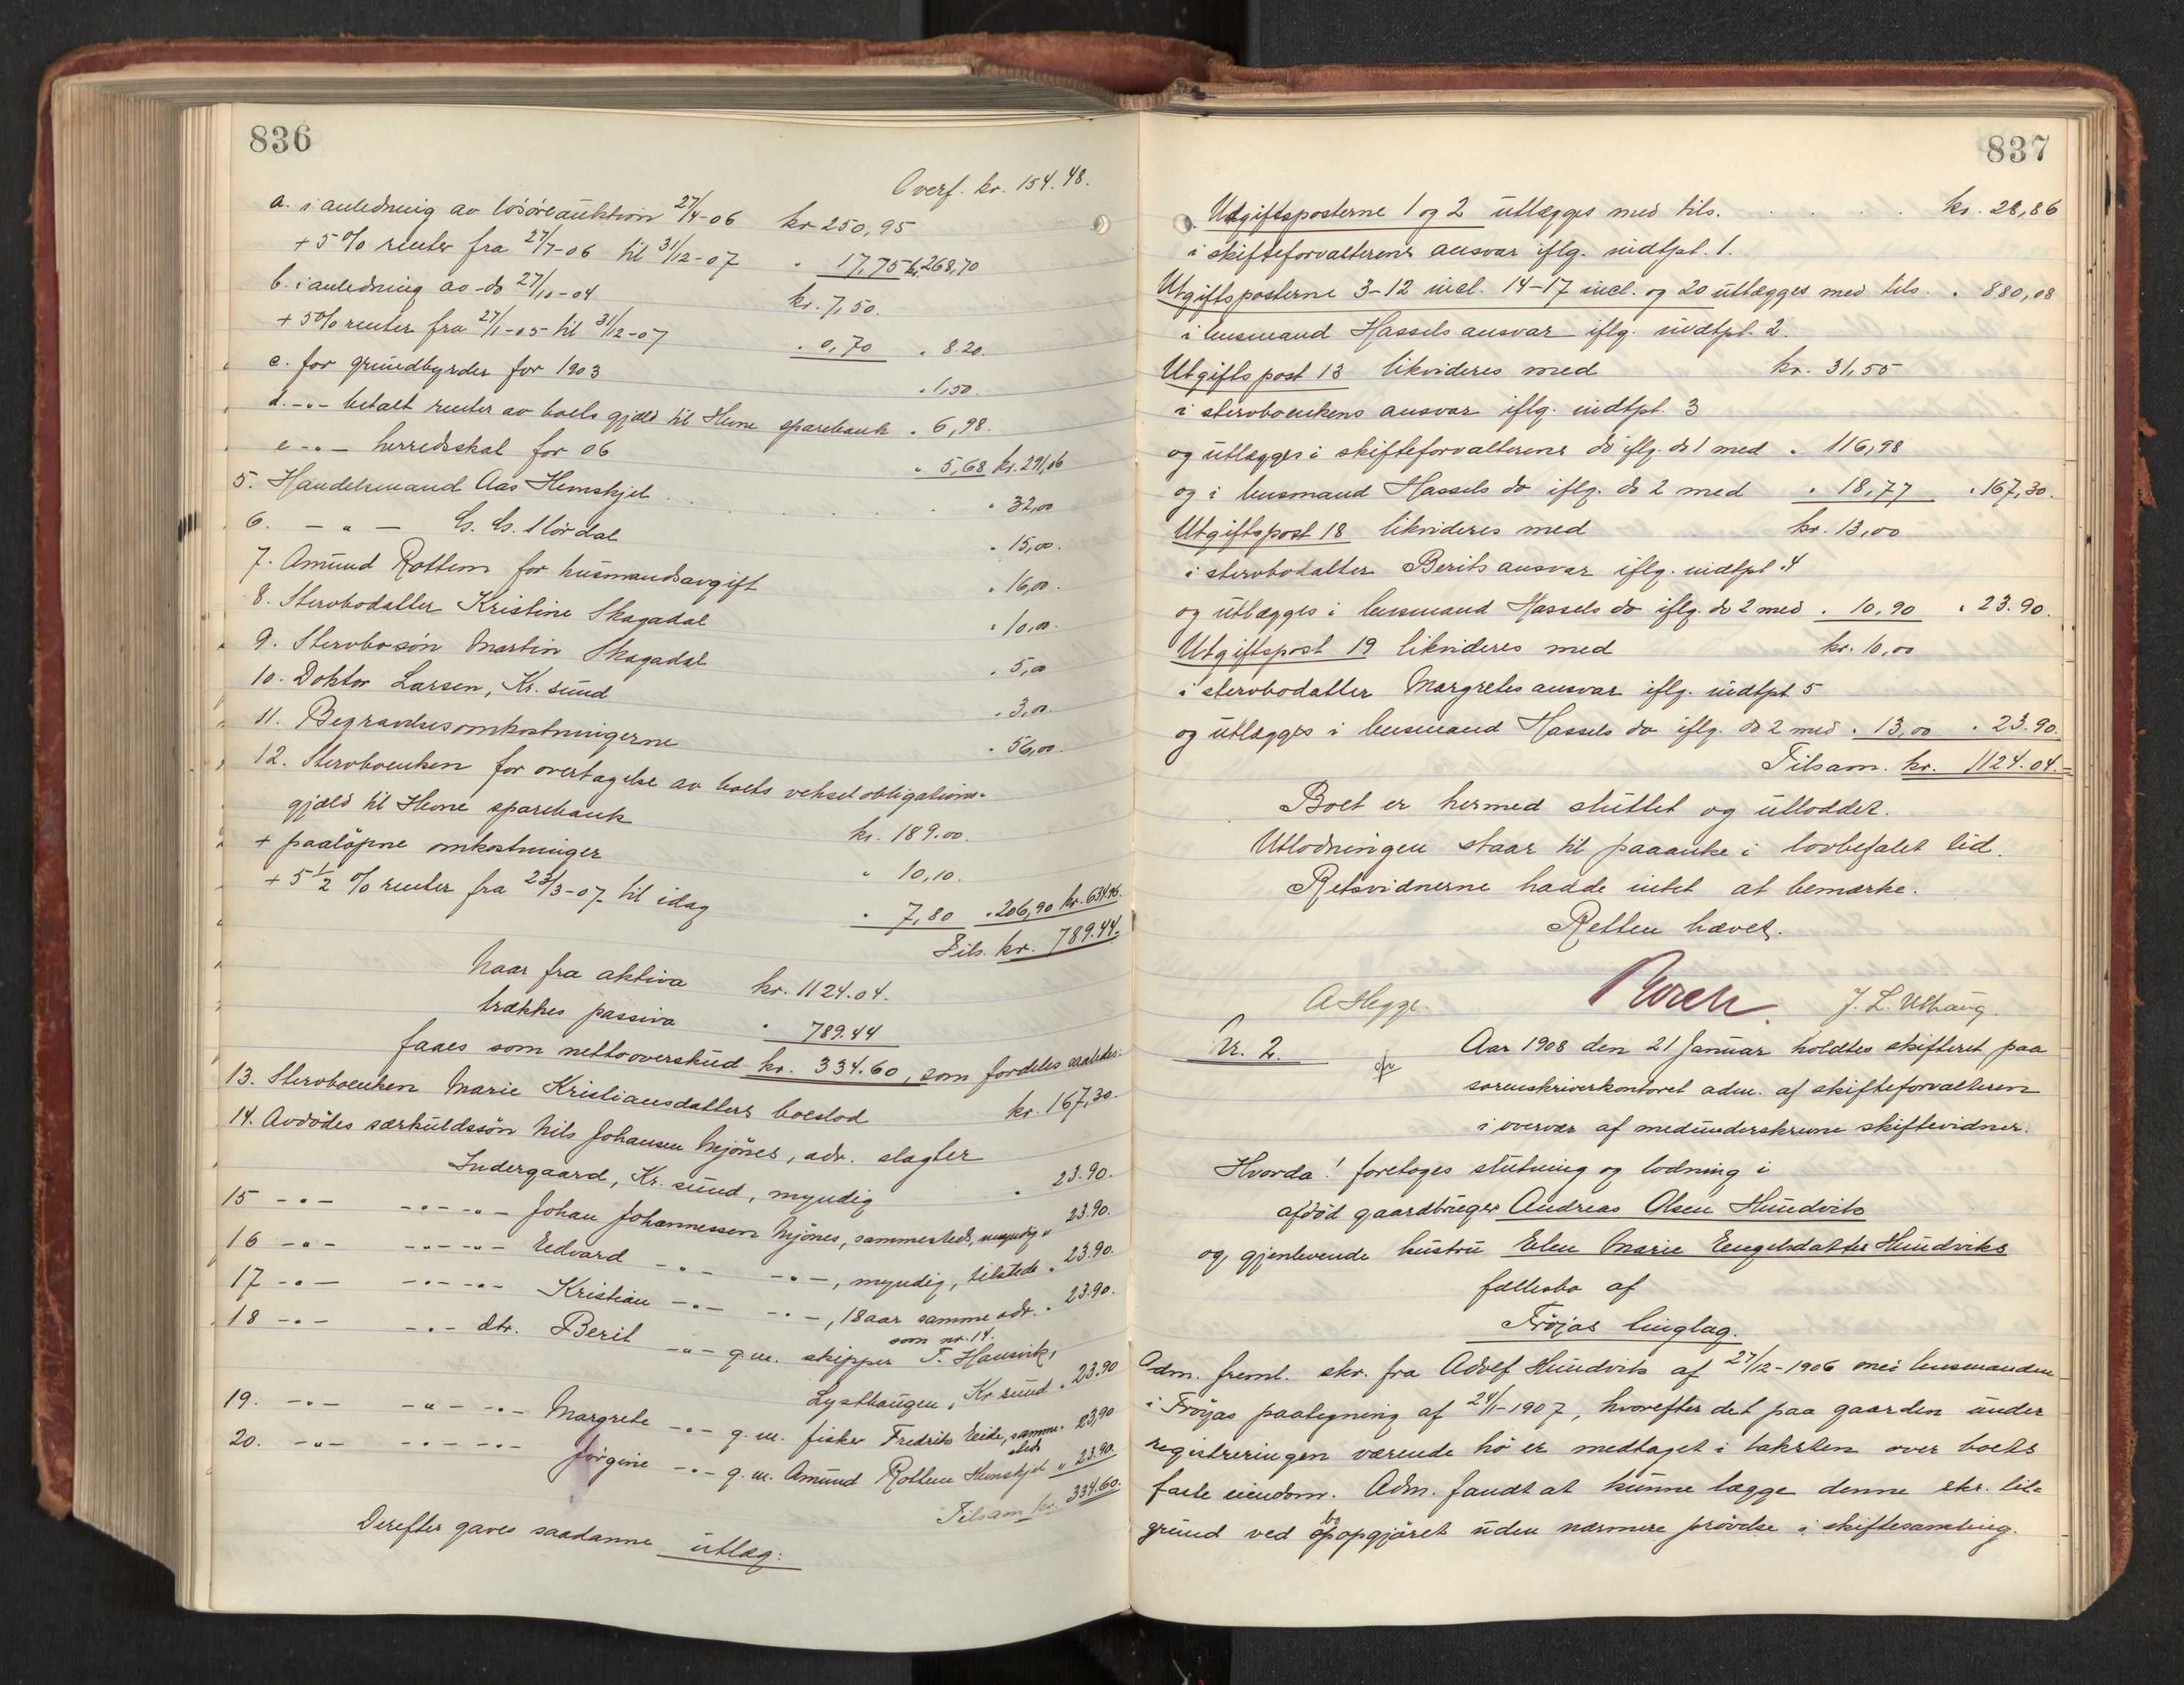 836
Overf. kr. 154.48.
a. i anledning av lösöreauktion 27/4-06 kr 250,95
+ 5 % renter fra 27/7-06 til 31/12-07 " 17,75 kr. 268,70
b. i anledning av -do 27/10-04 kr. 7,50.
+ 5% renter fra 27/1-05 til 31/12-07 " 0,70 " 8.20.
c. for grundbyrder for 1903 " 1,50.
d. -"- betalt renter av boets gjæld til Hevne sparebank " 6,98.
e -"- herredsskat for 06 " 5,68 kr. 291,06
5. Handelsmand Aas Hemskjel . . . . . " 32,00
6. - " - Ls. Ls. Stördal " 15,00.
7. Amund Rottem for husmandsavgift " 16,00.
8. Stervbodatter Kristine Skagadal " 10,00.
9. Stervbosön Martin Skagadal " 5,00
10. Doktor Larsen, Kr. sund " 3,00.
11. Begravelsesomkostningerne " 56,00.
12. Stervboenken for overtagelse av boets vekselobligations-
gjæld til Hevne sparebank kr. 189.00.
+ paalöpne omkostninger " 10,10.
+ 5 1/2 % renter fra 23/3-07 til idag " 7,80 " 206,90 kr. 634.96.
Tils. kr. 789.44.
Naar fra aktiva kr. 1124.04.
trækkes passiva " 789.44
faaes som nettooverskud kr. 334.60, som fordeles saaledes:
13. Stervboenken Marie Kristiansdatters boeslod kr. 167,30.
14. Avdödes særkuldssön Nils Johansen Mjönes, adr. slagter
Indergaard, Kr. sund, myndig " 23.90.
15 -"- -"- -"- Johan Johannessen Mjönes, sammesteds, myndig " 23.90.
16 -"- -"- -"- Edvard -"- -"-, myndig, tilstede " 23.90.
17 -"- -"- -"- Kristian -"- -"-, 18 aar samme adr. " 23.90.
som nr. 14.
18 -"- -"- dtr. Berit -"- g.m. skipper T. Hansvik,
Lysthaugen, Kr sund " 23.90
19. -"- -"- -"- Margrete -"- g.m. fisker Fredrik Eide, samme- " 23,90
steds
20. -"- -"- -"- Jörgine -"- g.m. Amund Rottem Hemskjel " 23.90.
Tilsam kr. 334.60.
Derefter gaves saadanne utlæg:
837
Utgiftsposterne 1 og 2 utlægges med tils. . . . . . kr. 28,86
i skifteforvalterens ansvar iflg. indtpt. 1.
Utgiftsposterne 3-12 incl. 14-17 incl. og 20 utlægges med tils. " 880,08
i lensmand Hassels ansvar iflg. indtpt. 2.
Utgiftspost 13 likvideres med kr. 31,55
i stervboenkens ansvar iflg. indtpt. 3
og utlægges i skifteforvalterens do iflg. do 1 med " 116,98
og i lensmand Hassels do iflg. do 2 med " 18,77 " 167,30.
Utgiftspost 18 likvideres med kr. 13,00
i stervbodatter Berits ansvar iflg. indtpt. 4
og utlægges i lensmand Hassels do iflg. do 2 med " 10,90 " 23.90.
Utgiftspost 19 likvideres med kr. 10,00
i stervbodatter Margretes ansvar iflg. indtpt 5
og utlægges i lensmand Hassels do iflg. do 2 med " 13,00 " 23.90.
Tilsam. kr. 1124.04.=
Boet er hermed sluttet og utloddet.
Utlodningen staar til paaanke i lovbefalet tid.
Retsvidnerne hadde intet at bemærke.
Retten hævet.
A Hegge. J. L. Uthaug.
Nr. 2. Aar 1908 den 21 Januar holdtes skifteret paa
sorenskriverkontoret adm. af skifteforvalteren
i overvær af medunderskrevne skiftevidner.
Hvorda! foretoges slutning og lodning i
afdöd gaardbruger Andreas Olsen Hundviks
og gjenlevende hustru Elen Marie Engelsdatter Hundviks
fællesbo af
Fröjas tinglag.
Adm. freml. skr. fra Adolf Hundvik af 27/12-1906 med lensmanden
i Fröjas paategning af 24/1-1907, hvorefter det paa gaarden under
registreringen værende hö er medtaget i taksten over boets
faste eiendom. Adm. fandt at kunne lægge denne skr. til
grund ved boopgjöret uden nærmere prövelse i skiftesamling.